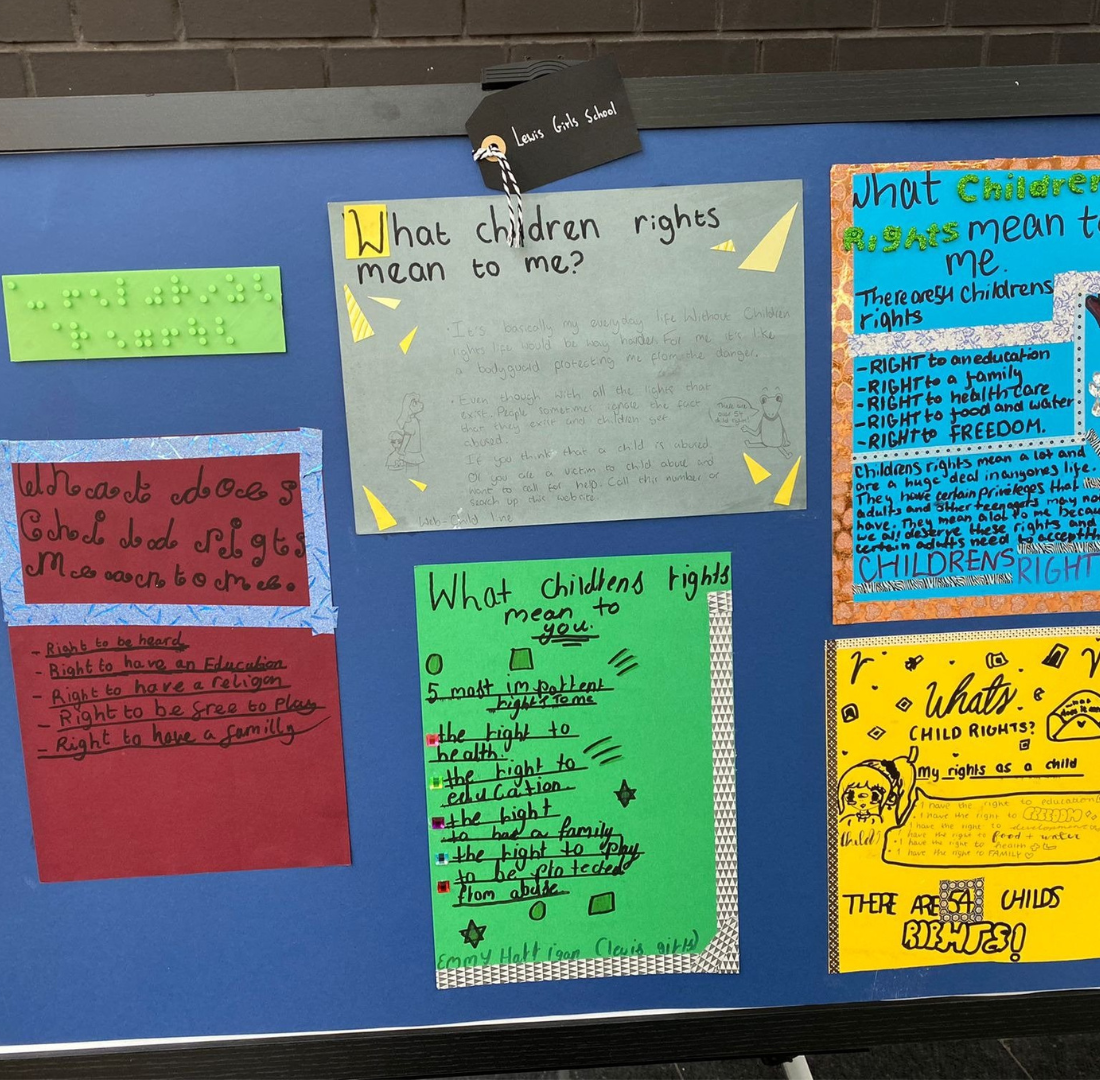 Lewis Girls School
What children rights
mean to me?
· It's basically my everyday life Without Children
rights life would be way harder. For me it's like
a bodyguard protecting me from the danger.
· Even though with all the rights that
exist. People sometimes ignore the fact
then they exist and children get
abused.
If you think that a child is abused
Or you are a victim to child abuse and
want to call for help. Call this number or
search up this website.
Web-Child line
There are
What does
Child rights
Mean to me.
- Right to be heard
- Right to have an Education
- Right to have a religon
- Right to be free to Play
- Right to have a familly
What childrens rights
mean to
you.
5 most important
rights to me
the right to
health.
the right to
education.
the right
to has a family
the right to play
to be protected
from abuse
Emmy Hartigan (lewis girls)
What Children
Rights mean to
me.
There are 54 Childrens
rights
-RIGHT to an education
-RIGHT to a family
-RIGHT to healthcare
-RIGHT to food and water
-RIGHT to FREEDOM.
Childrens rights mean a lot and
are a huge deal in anyones life.
They have certain priveleges that
adults and other teenagers may not
have. They mean a lot to me becau
we all deserve these rights and
certain adults need to accept th
CHILDRENS RIGHT
Whats
CHILD RIGHTS?
My rights as a child
· I have the right to education
· I have the right to FREEDOM
· I have the right to development
· I have the right to food + water
· I have the right to health
· I have the right to FAMILY
THERE ARE 54 CHILDS
RIGHTS!